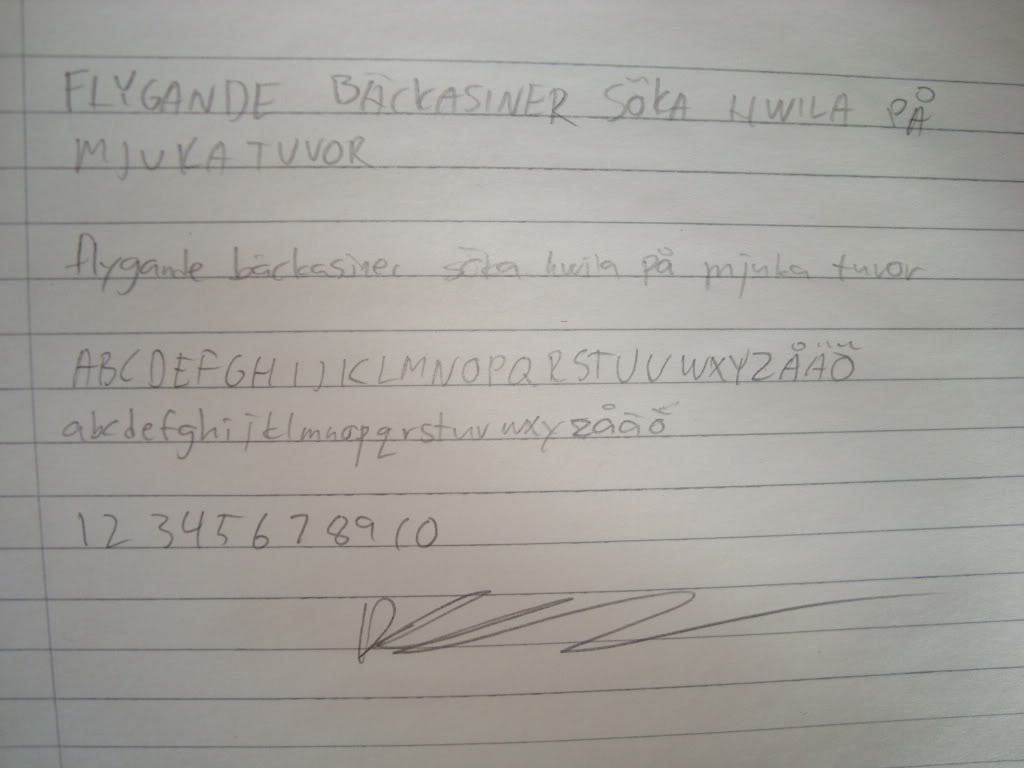 FLYGANDE BÄCKASINER SÖKA HWILA PÅ
MJUKA TUVOR
flygande bäckasiner söka hwila på mjuka tuvor
ABCDEFGHIJKLMNOPQRSTUVWXYZÅÄÖ
abcdefghijklmnopqrstuvwxyzåäö
1 2 3 4 5 6 7 8 9 10